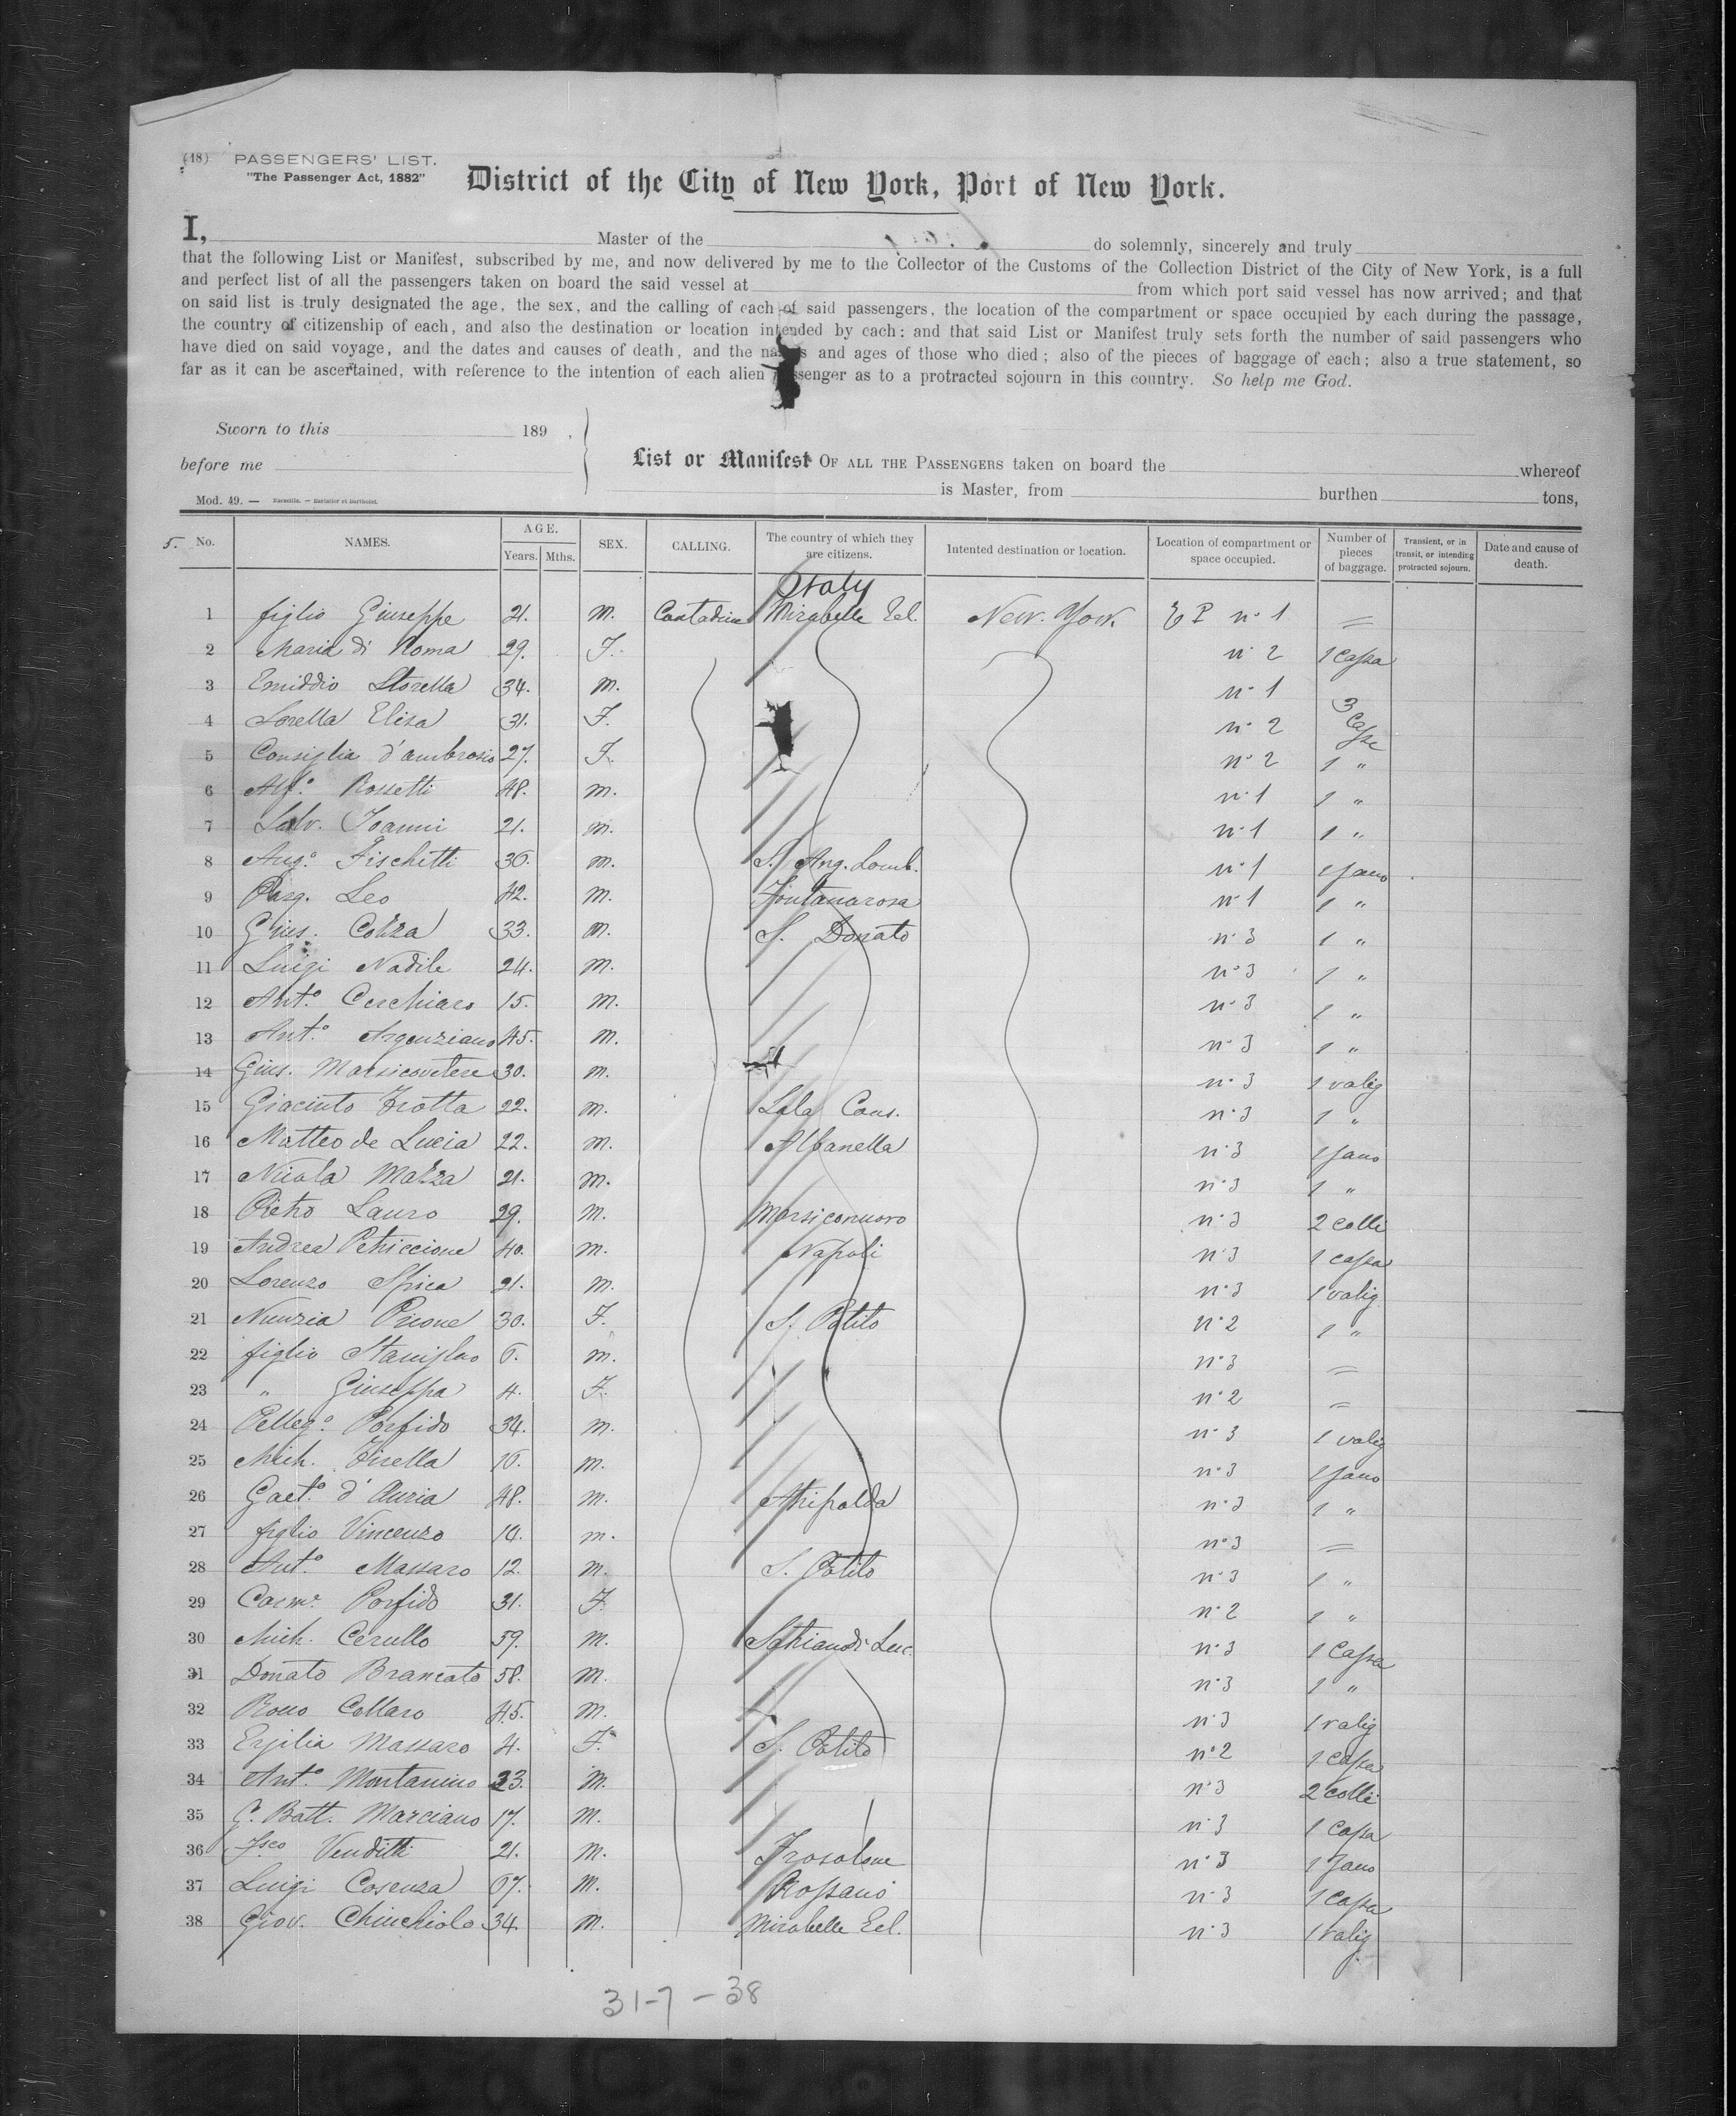 (18) PASSENGERS' LIST.
"The Passenger Act, 1882"
District of the City of New York, Port of New York.
I, Master of the do solemnly, sincerely and truly
that the following List or Manifest, subscribed by me, and now delivered by me to the Collector of the Customs of the Collection District of the City of New York, is a full
and perfect list of all the passengers taken on board the said vessel at from which port said vessel has now arrived; and that
on said list is truly designated the age, the sex, and the calling of each of said passengers, the location of the compartment or space occupied by each during the passage,
the country of citizenship of each, and also the destination or location intended by each: and that said List or Manifest truly sets forth the number of said passengers who
have died on said voyage, and the dates and causes of death, and the names and ages of those who died; also of the pieces of baggage of each; also a true statement, so
far as it can be ascertained, with reference to the intention of each alien passenger as to a protracted sojourn in this country. So help me God.
Sworn to this 189 ,
before me
List or Manifest OF ALL THE PASSENGERS taken on board the whereof
is Master, from burthen tons,
Mod. 49. — Marseille. — Barlatier et Barthelet.
5. No. NAMES. AGE. Years. Mths. SEX. CALLING. The country of which they are citizens. Intented destination or location. Location of compartment or space occupied. Number of pieces of baggage. Transient, or in transit, or intending protracted sojourn. Date and cause of death.
Italy
1 figlio Giuseppe 21. m. Contadino Mirabelle Ecl. New-York E P n° 1 =
2 Maria di Roma 29. F. n° 2 1 Cassa
3 Emiddio Storella 34. m. n° 1
4 Sorella Elisa 31. F. n° 2 3 Casse
5 Consiglia d'ambrosio 27. F. n° 2 1 "
6 Alf.° Rossetti 48. m. n° 1 1 "
7 Salv. Ioanni 21. m. n° 1 1 "
8 Ang.° Fischetti 36. m. S. Ang. Lomb. n° 1 1 sano
9 Pasq. Leo 42. m. Fontanarosa n° 1 1 "
10 Gius. Cozza 33. m. S. Donato n° 3 1 "
11 Luigi Nadile 24. m. n° 3 1 "
12 Ant.° Cerchiaro 15. m. n° 3 1 "
13 Ant.° Argenziano 45. m. n° 3 1 "
14 Gius. Marsicovetere 30. m. n° 3 1 valig
15 Giacinto Trotta 22. m. Sala Cons. n° 3 1 "
16 Matteo de Lucia 22. m. Albanella n° 3 1 sano
17 Nicola Mazza 21. m. n° 3 1 "
18 Pietro Lauro 29. m. Marsiconuovo n° 3 2 colli
19 Andrea Petriccione 40. m. Napoli n° 3 1 cassa
20 Lorenzo Spica 21. m. n° 3 1 valig
21 Nunzia Picone 30. F. S. Potito n° 2 1 "
22 figlio Stanislao 6. m. n° 3 =
23 " Giuseppa 4. F. n° 2 =
24 Pelleg.° Porfido 34. m. n° 3 1 valig
25 Mich. Tirella 16. m. n° 3 1 sano
26 Gaet.° d'Auria 48. m. Atripalda n° 3 1 "
27 figlio Vincenzo 10. m. n° 3 =
28 Ant.° Massaro 12. m. S. Potito n° 3 1 "
29 Carm.e Porfido 31. F. n° 2 1 "
30 Mich. Cerullo 59. m. Satriano di Luc. n° 3 1 Cassa
31 Donato Brancato 58. m. n° 3 1 "
32 Rocco Collaro 45. m. n° 3 1 valig
33 Ersilia Massaro 4. F. S. Potito n° 2 1 cassa
34 Ant.° Montanino 23. m. n° 3 2 colli
35 G. Batt. Marciano 17. m. n° 3 1 cassa
36 Fsco Venditti 21. m. Frosolone n° 3 1 sano
37 Luigi Cosenza 67. m. Rossano n° 3 1 Cassa
38 Giov. Chinchiolo 34. m. Mirabelle Ecl. n° 3 1 valig
31-7-38